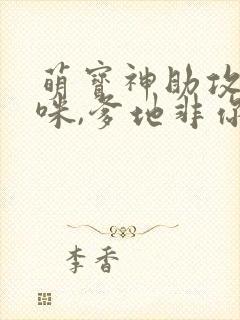 萌寶神助攻
咪,爹地非你
李香